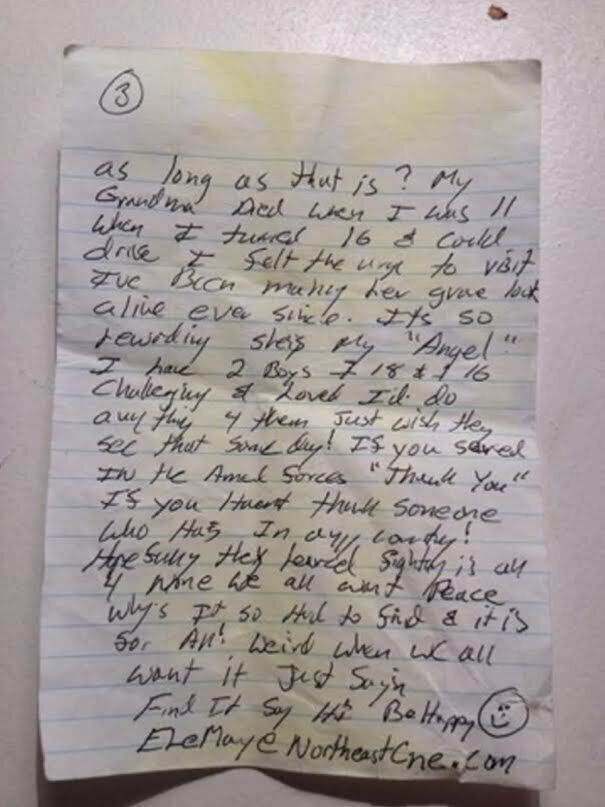 3
as long as that is? My
Grandma Died when I was 11
when I turned 16 & could
drive I felt the urge to visit
I've Been making her grave look
alive ever since. Its so
rewording she's my "Angel"
I have 2 Boys 18 & 16
Challenging & Loved I'd do
any thing 4 them Just wish they
see that some day! If you served
In the Armed forces "Thank You"
If you Havent thank someone
who Has In any country!
Hopefully they learned fighting is all
4 none we all want Peace
Why's It so Hard to find & it is
for All! Weird when we all
want it Just Say'n
Find It Say Hi Be Happy
ELeMay@NortheastCne.com